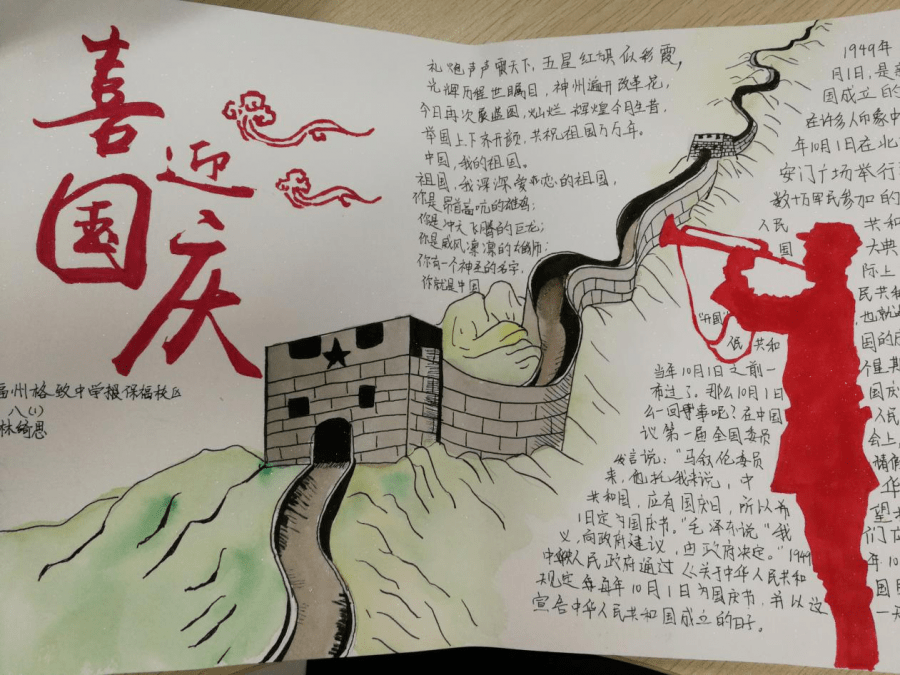 喜迎国庆
福州格致中学鼓保福校区
八(1)
林绮思
礼炮声声震天下，五星红旗似彩霞，
光辉历程世瞩目，神州遍开改革花，
今日再次展蓝图，灿烂辉煌今日生昔，
举国上下齐开颜，共祝祖国万万年。
中国，我的祖国。
祖国，我深深爱恋的祖国，
你是昂首高吭的雄鸡；
你是冲天飞腾的巨龙；
你是威风凛凛的雄狮；
你有一个神圣的名字，
你就是中国
1949年
月1日，是
国成立的
在许多人印象中
年10月1日在北
安门广场举行
数十万军民参加的
人民 共和
国 大典
际上
民共和
"开国 也就
民共和 国的
星期
国庆
人民
会上，
请假
华
望
们在
年10
国
一天
当年10月1日之前一
布过了。那么10月1日
么一回事呢？在中国
议第一届全国委员
发言说："马叙伦委员
来，他托我来说，中
共和国，应有国庆日，所以希
1日定为国庆节。"毛泽东说"我
义，向政府建议，由政府决定。"1949
中央人民政府通过《关于中华人民共和
规定每年10月1日为国庆节，并以这
宣告中华人民共和国成立的日子。